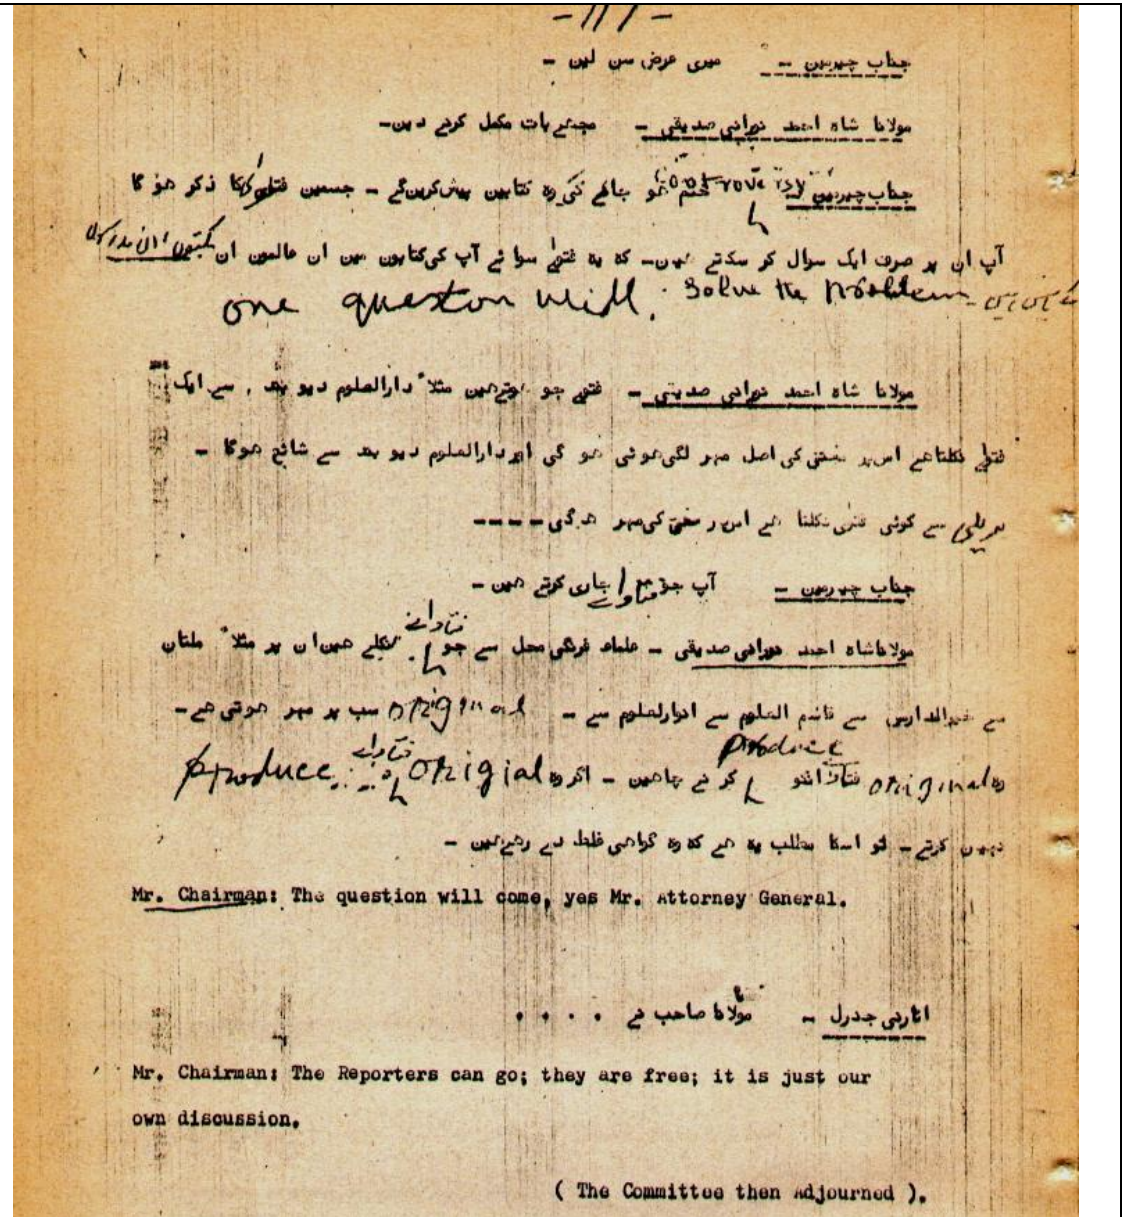 جناب چیرمین - میری عرض سن لین -
مولانا شاہ احمد نورانی صدیقی - مجھے بات مکمل کرنے دین -
جناب چیرمین controversy ختم ہو جائے گی وہ کتابین پیش کرین گے - جسمین فتاوی کا ذکر ہو گا
آپ ان پر صرف ایک سوال کر سکتے ہین - کہ یہ فتوے سوائے آپ کی کتابون مین ان عالمون ان
one question will solve the problem -
مولانا شاہ احمد نورانی صدیقی - فتوے جو ہوتے ہین مثلاً دارالعلوم دیو بند ، سے ایک
فتوے نکلتا ہے اس پر مفتی کی اصل مہر لگی ہوئی ہو گی اور دارالعلوم دیو بند سے شائع ہوگا -
بریلی سے کوئی فتوی نکلتا ہے اس پر مفتی کی مہر ہو گی - - - -
جناب چیرمین - آپ جو فتاوے جاری کرتے ہین -
مولانا شاہ احمد نورانی صدیقی - علماء فرنگی محل سے جو فتاوے نکلے ہین ان پر مثلاً ملتان
سے خیرالمدارس سے قاسم العلوم سے انوارالعلوم سے - original سب پر مہر ہوتی ہے -
وہ original فتاوے انکو produce کرنے چاہین - اگر وہ origial فتاوے produce
نہین کرتے - تو اسکا مطلب یہ ہے کہ وہ گواہی غلط دے رہے ہین -
Mr. Chairman: The question will come, yes Mr. Attorney General.
اٹارنی جنرل - مولانا صاحب نے . . . .
Mr. Chairman: The Reporters can go; they are free; it is just our
own discussion.
( The Committee then Adjourned ).